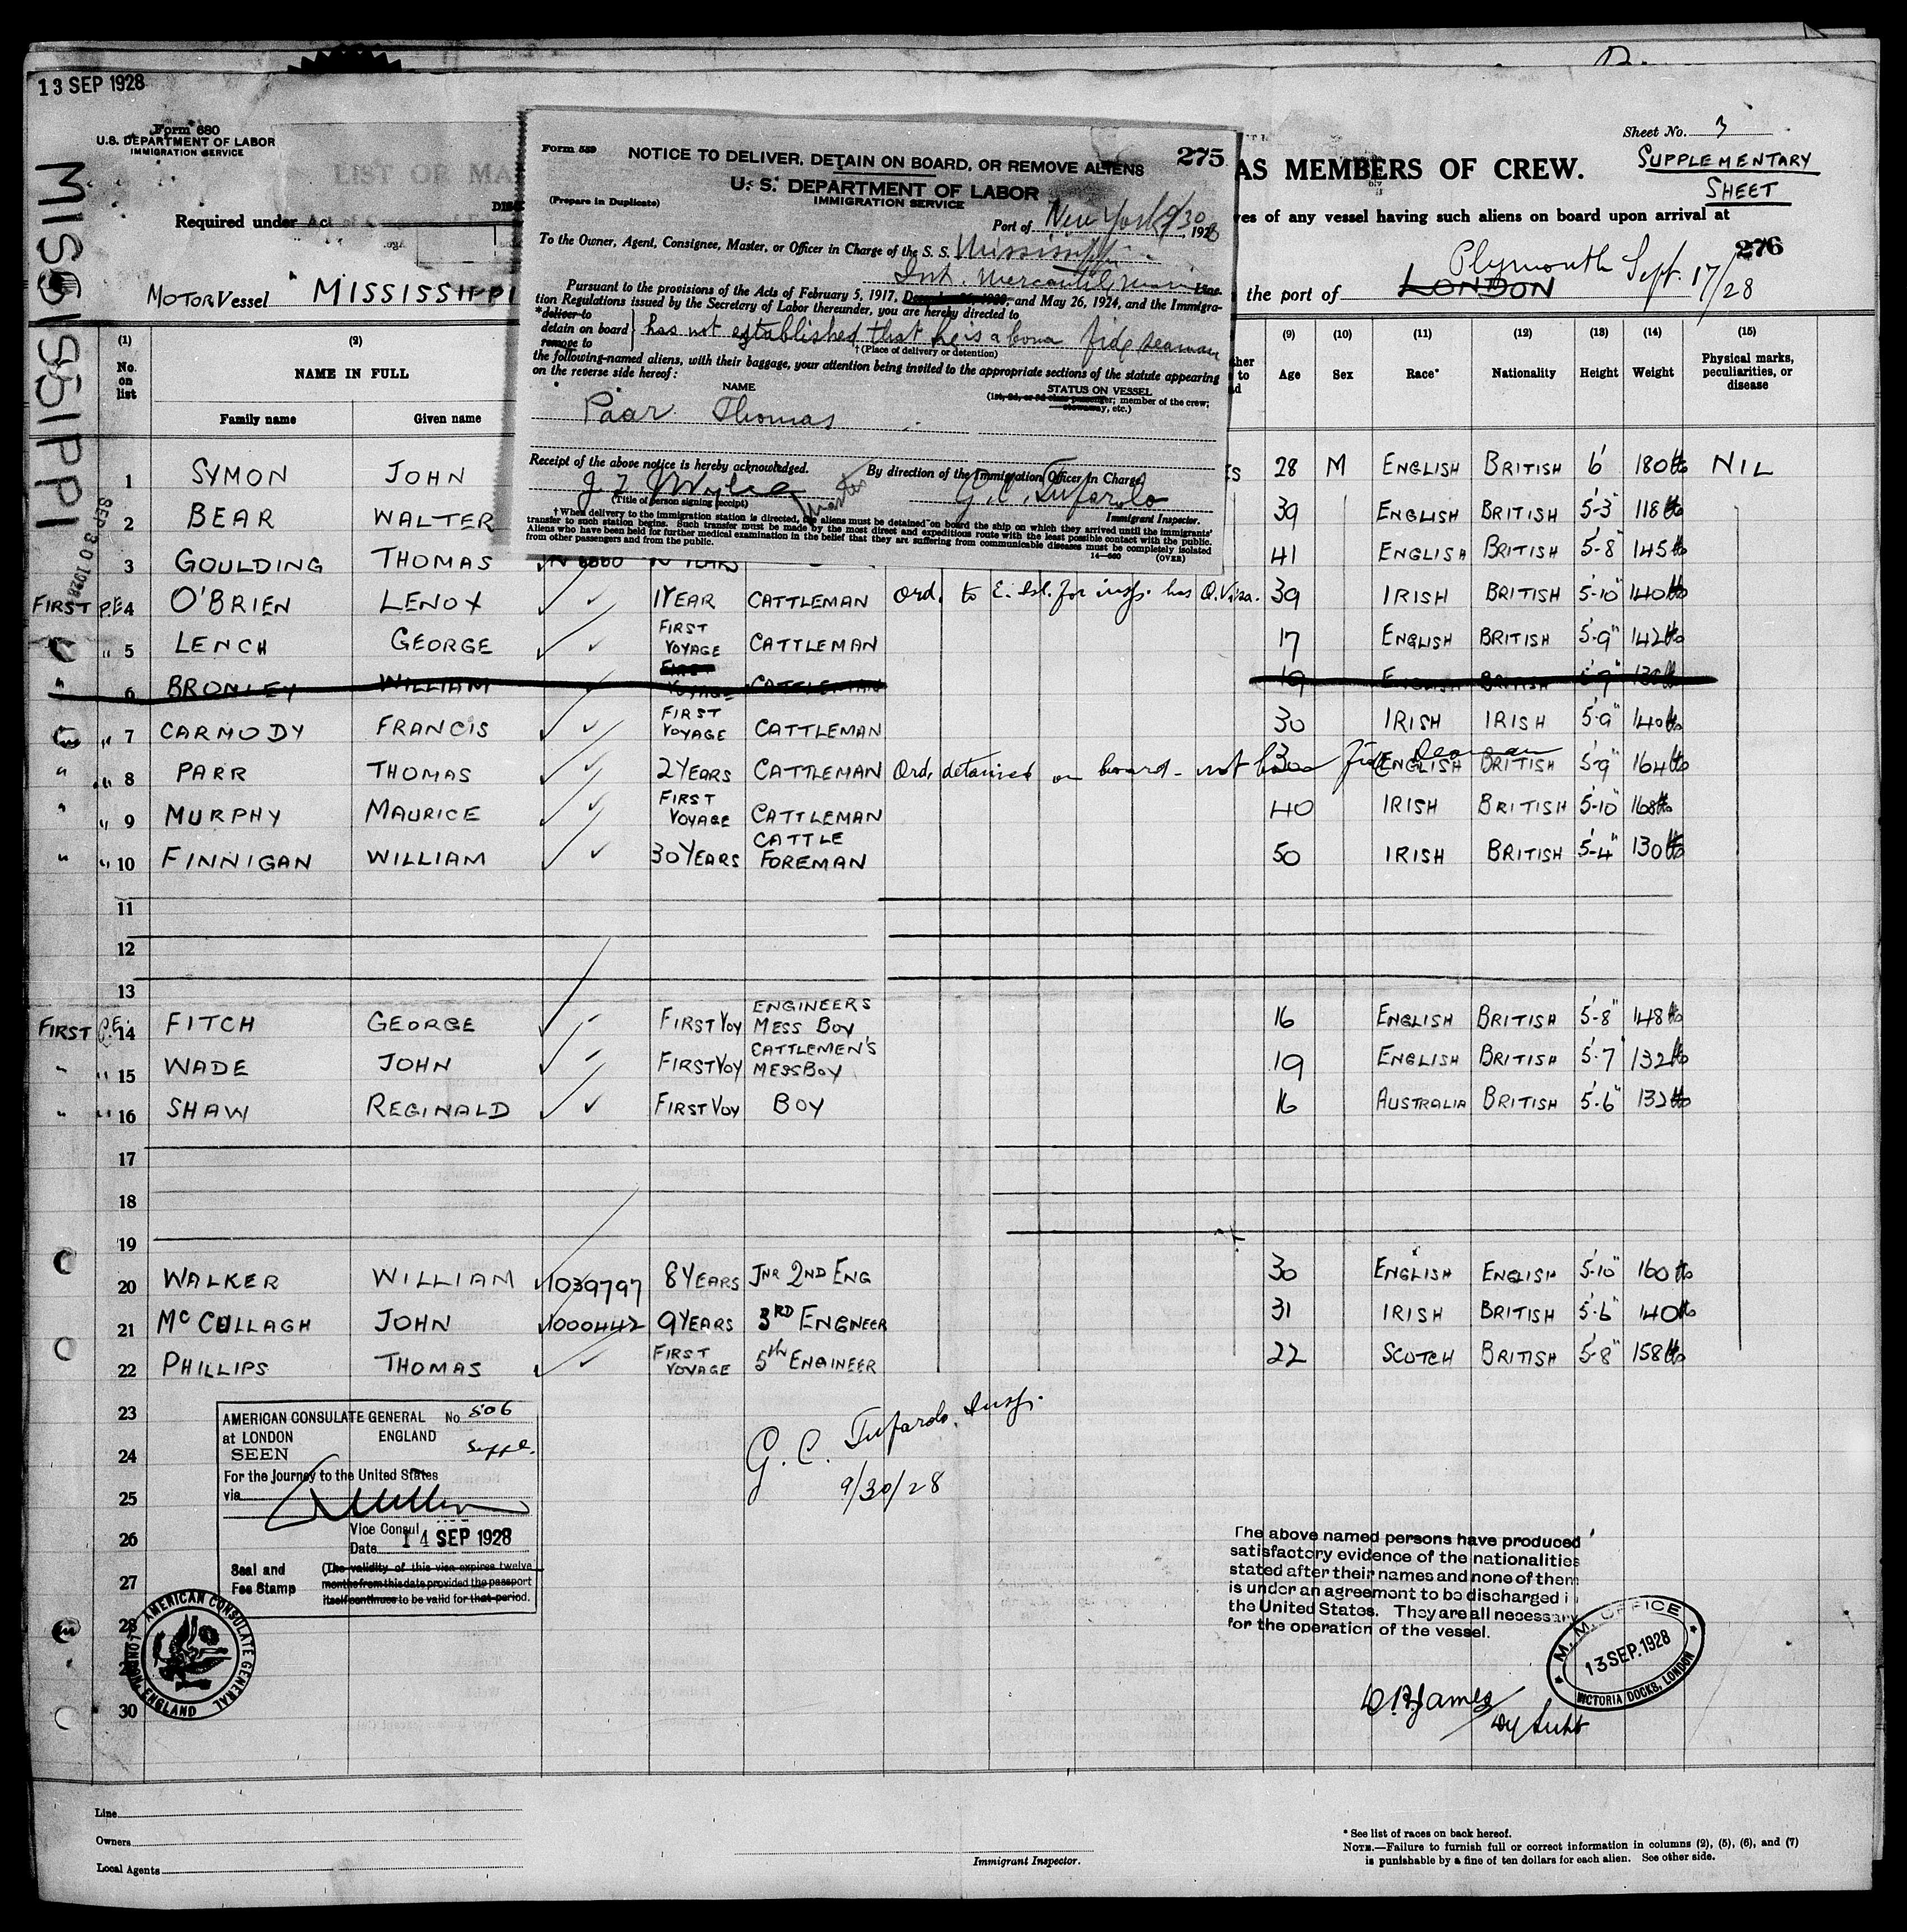 13 SEP 1928
Form 680
U.S. DEPARTMENT OF LABOR
IMMIGRATION SERVICE
LIST OR MA
Required under Act
MISSISSIPPI
SEP 30 1928
MOTOR Vessel MISSISSIPPI
Form 559
NOTICE TO DELIVER, DETAIN ON BOARD, OR REMOVE ALIENS
275
U. S. DEPARTMENT OF LABOR
IMMIGRATION SERVICE
(Prepare in Duplicate)
Port of New York 9/30, 1928
To the Owner, Agent, Consignee, Master, or Officer in Charge of the S. S. Mississippi
Int. Mercantile Marine Line.
Pursuant to the provisions of the Acts of February 5, 1917, December 26, 1920, and May 26, 1924, and the Immigra-
tion Regulations issued by the Secretary of Labor thereunder, you are hereby directed to
*deliver to
detain on board } has not established that he is a bona fide seaman
remove to
†(Place of delivery or detention)
the following-named aliens, with their baggage, your attention being invited to the appropriate sections of the statute appearing
on the reverse side hereof:
NAME
STATUS ON VESSEL
(1st, 2d, or 3d class passenger; member of the crew;
stowaway, etc.)
Paar Thomas
Receipt of the above notice is hereby acknowledged.
By direction of the Immigration Officer in Charge.
Master
G. C. Tufarolo
(Title of person signing receipt)
Immigrant Inspector.
†When delivery to the immigration station is directed, the aliens must be detained on board the ship on which they arrived until the immigrants'
transfer to such station begins. Such transfer must be made by the most direct and expeditious route with the least possible contact with the public.
Aliens who have been held for further medical examination in the belief that they are suffering from communicable diseases must be completely isolated
from other passengers and from the public.
14—680 (OVER)
Sheet No. 3
SUPPLEMENTARY
SHEET
AS MEMBERS OF CREW.
ves of any vessel having such aliens on board upon arrival at
276
the port of LONDON Plymouth Sept. 17/28
(1) (2) (9) (10) (11) (12) (13) (14) (15)
No. on list
NAME IN FULL
Family name Given name
Age Sex Race* Nationality Height Weight Physical marks, peculiarities, or disease
1 SYMON JOHN 28 M ENGLISH BRITISH 6' 180 lb NIL
2 BEAR WALTER 39 ENGLISH BRITISH 5'-3" 118 lb
3 GOULDING THOMAS 41 ENGLISH BRITISH 5'-8" 145 lb
FIRST P.E 4 O'BRIEN LENOX 1 YEAR CATTLEMAN Ord. to E. Isl. for insp. has Q. Visa. 39 IRISH BRITISH 5'-10" 140 lb
" 5 LENCH GEORGE FIRST VOYAGE CATTLEMAN 17 ENGLISH BRITISH 5'-9" 142 lb
" 6 BROMLEY WILLIAM FIRST VOYAGE CATTLEMAN 19 ENGLISH BRITISH 5'-7"
" 7 CARMODY FRANCIS FIRST VOYAGE CATTLEMAN 30 IRISH IRISH 5'-9" 140 lb
" " 8 PARR THOMAS 2 YEARS CATTLEMAN Ord. detained on board - not bona fide seaman ENGLISH BRITISH 5'-9" 164 lb
" " 9 MURPHY MAURICE FIRST VOYAGE CATTLEMAN 40 IRISH BRITISH 5'-10" 168 lb
" " 10 FINNIGAN WILLIAM 30 YEARS CATTLE FOREMAN 50 IRISH BRITISH 5'-4" 130 lb
11
12
13
FIRST P.E. 14 FITCH GEORGE FIRST VOY ENGINEERS MESS BOY 16 ENGLISH BRITISH 5'-8" 148 lb
" " 15 WADE JOHN FIRST VOY CATTLEMEN'S MESSBOY 19 ENGLISH BRITISH 5'-7" 132 lb
" " 16 SHAW REGINALD FIRST VOY BOY 16 AUSTRALIA BRITISH 5'-6" 132 lb
17
18
19
20 WALKER WILLIAM 1039797 8 YEARS JNR 2ND ENG 30 ENGLISH ENGLISH 5'-10" 160 lb
21 McCULLAGH JOHN 1000442 9 YEARS 3RD ENGNEER 31 IRISH BRITISH 5'-6" 140 lb
22 PHILLIPS THOMAS FIRST VOYAGE 5th ENGINEER 22 SCOTCH BRITISH 5'-8" 158 lb
23
24
25
26
27
28
30
AMERICAN CONSULATE GENERAL No. 506
at LONDON ENGLAND
SEEN Suppl.
For the Journey to the United States
via
Vice Consul
Date 14 SEP 1928
Seal and Fee Stamp
(The validity of this visa expires twelve
months from this date provided the passport
itself continues to be valid for that period.
AMERICAN CONSULATE GENERAL
LONDON, ENGLAND
G. C. Tufarolo, Insp.
9/30/28
The above named persons have produced
satisfactory evidence of the nationalities
stated after their names and none of them
is under an agreement to be discharged i
the United States. They are all necessary
for the operation of the vessel.
M. M. OFFICE
13 SEP. 1928
VICTORIA DOCKS, LONDON
James
Line
Owners
Local Agents
Immigrant Inspector.
* See list of races on back hereof.
NOTE.—Failure to furnish full or correct information in columns (2), (5), (6), and (7)
is punishable by a fine of ten dollars for each alien. See other side.